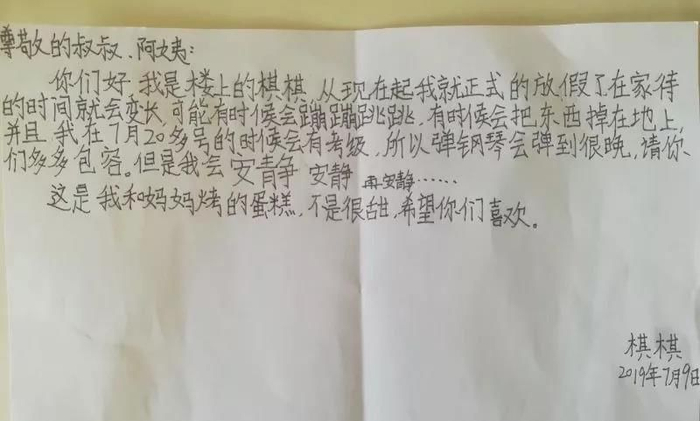 尊敬的叔叔、阿姨:
你们好,我是楼上的棋棋,从现在起我就正式的放假了在家待
的时间就会变长,可能有时候会蹦蹦跳跳,有时候会把东西掉在地上,
并且,我在7月20多号的时候会有考级,所以弹钢琴会弹到很晚,请你
们多多包容。但是我会安青争 安静 再安静……
这是我和妈妈烤的蛋糕,不是很甜,希望你们喜欢。
棋棋
2019年7月9日